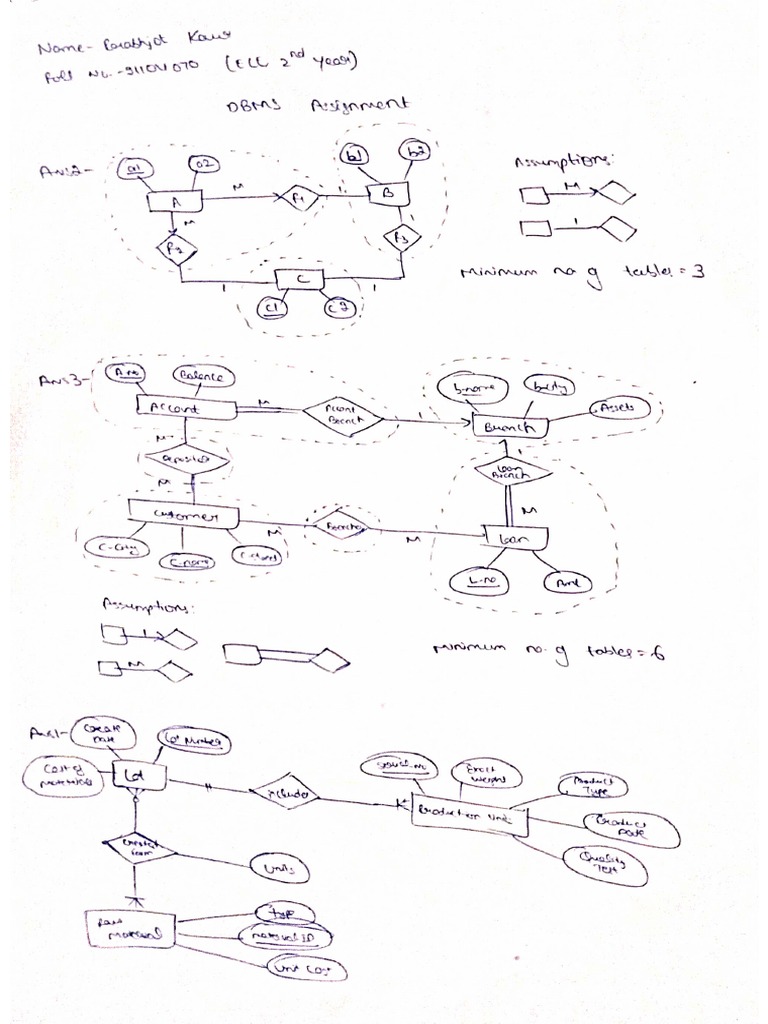 Name- Kaur
Roll No.- (ECE 2nd Year)
DBMS Assignment
Ans2-
a1 a2
b1 b2
A M R1 1 B
M
R2
R3
1 C 1
c1 c2
Assumptions:
M
1
Minimum no. of tables = 3
Ans3-
A-no Balance
Account M Account Branch 1 Branch
b-name b-city Assets
M
depositor
M
Customer M M loan
C-City C-name
1
Loan Branch
M
L-no Amt
Assumptions:
1
M
Minimum no. of tables = 6
Ans1-
Create Date Lot Number
Cost of Materials Lot includes Production Unit
Serial-no Exact Weight Product Type
Product Date
Quality Test
Created from Units
Raw Material
Type
Material ID
Unit Cost